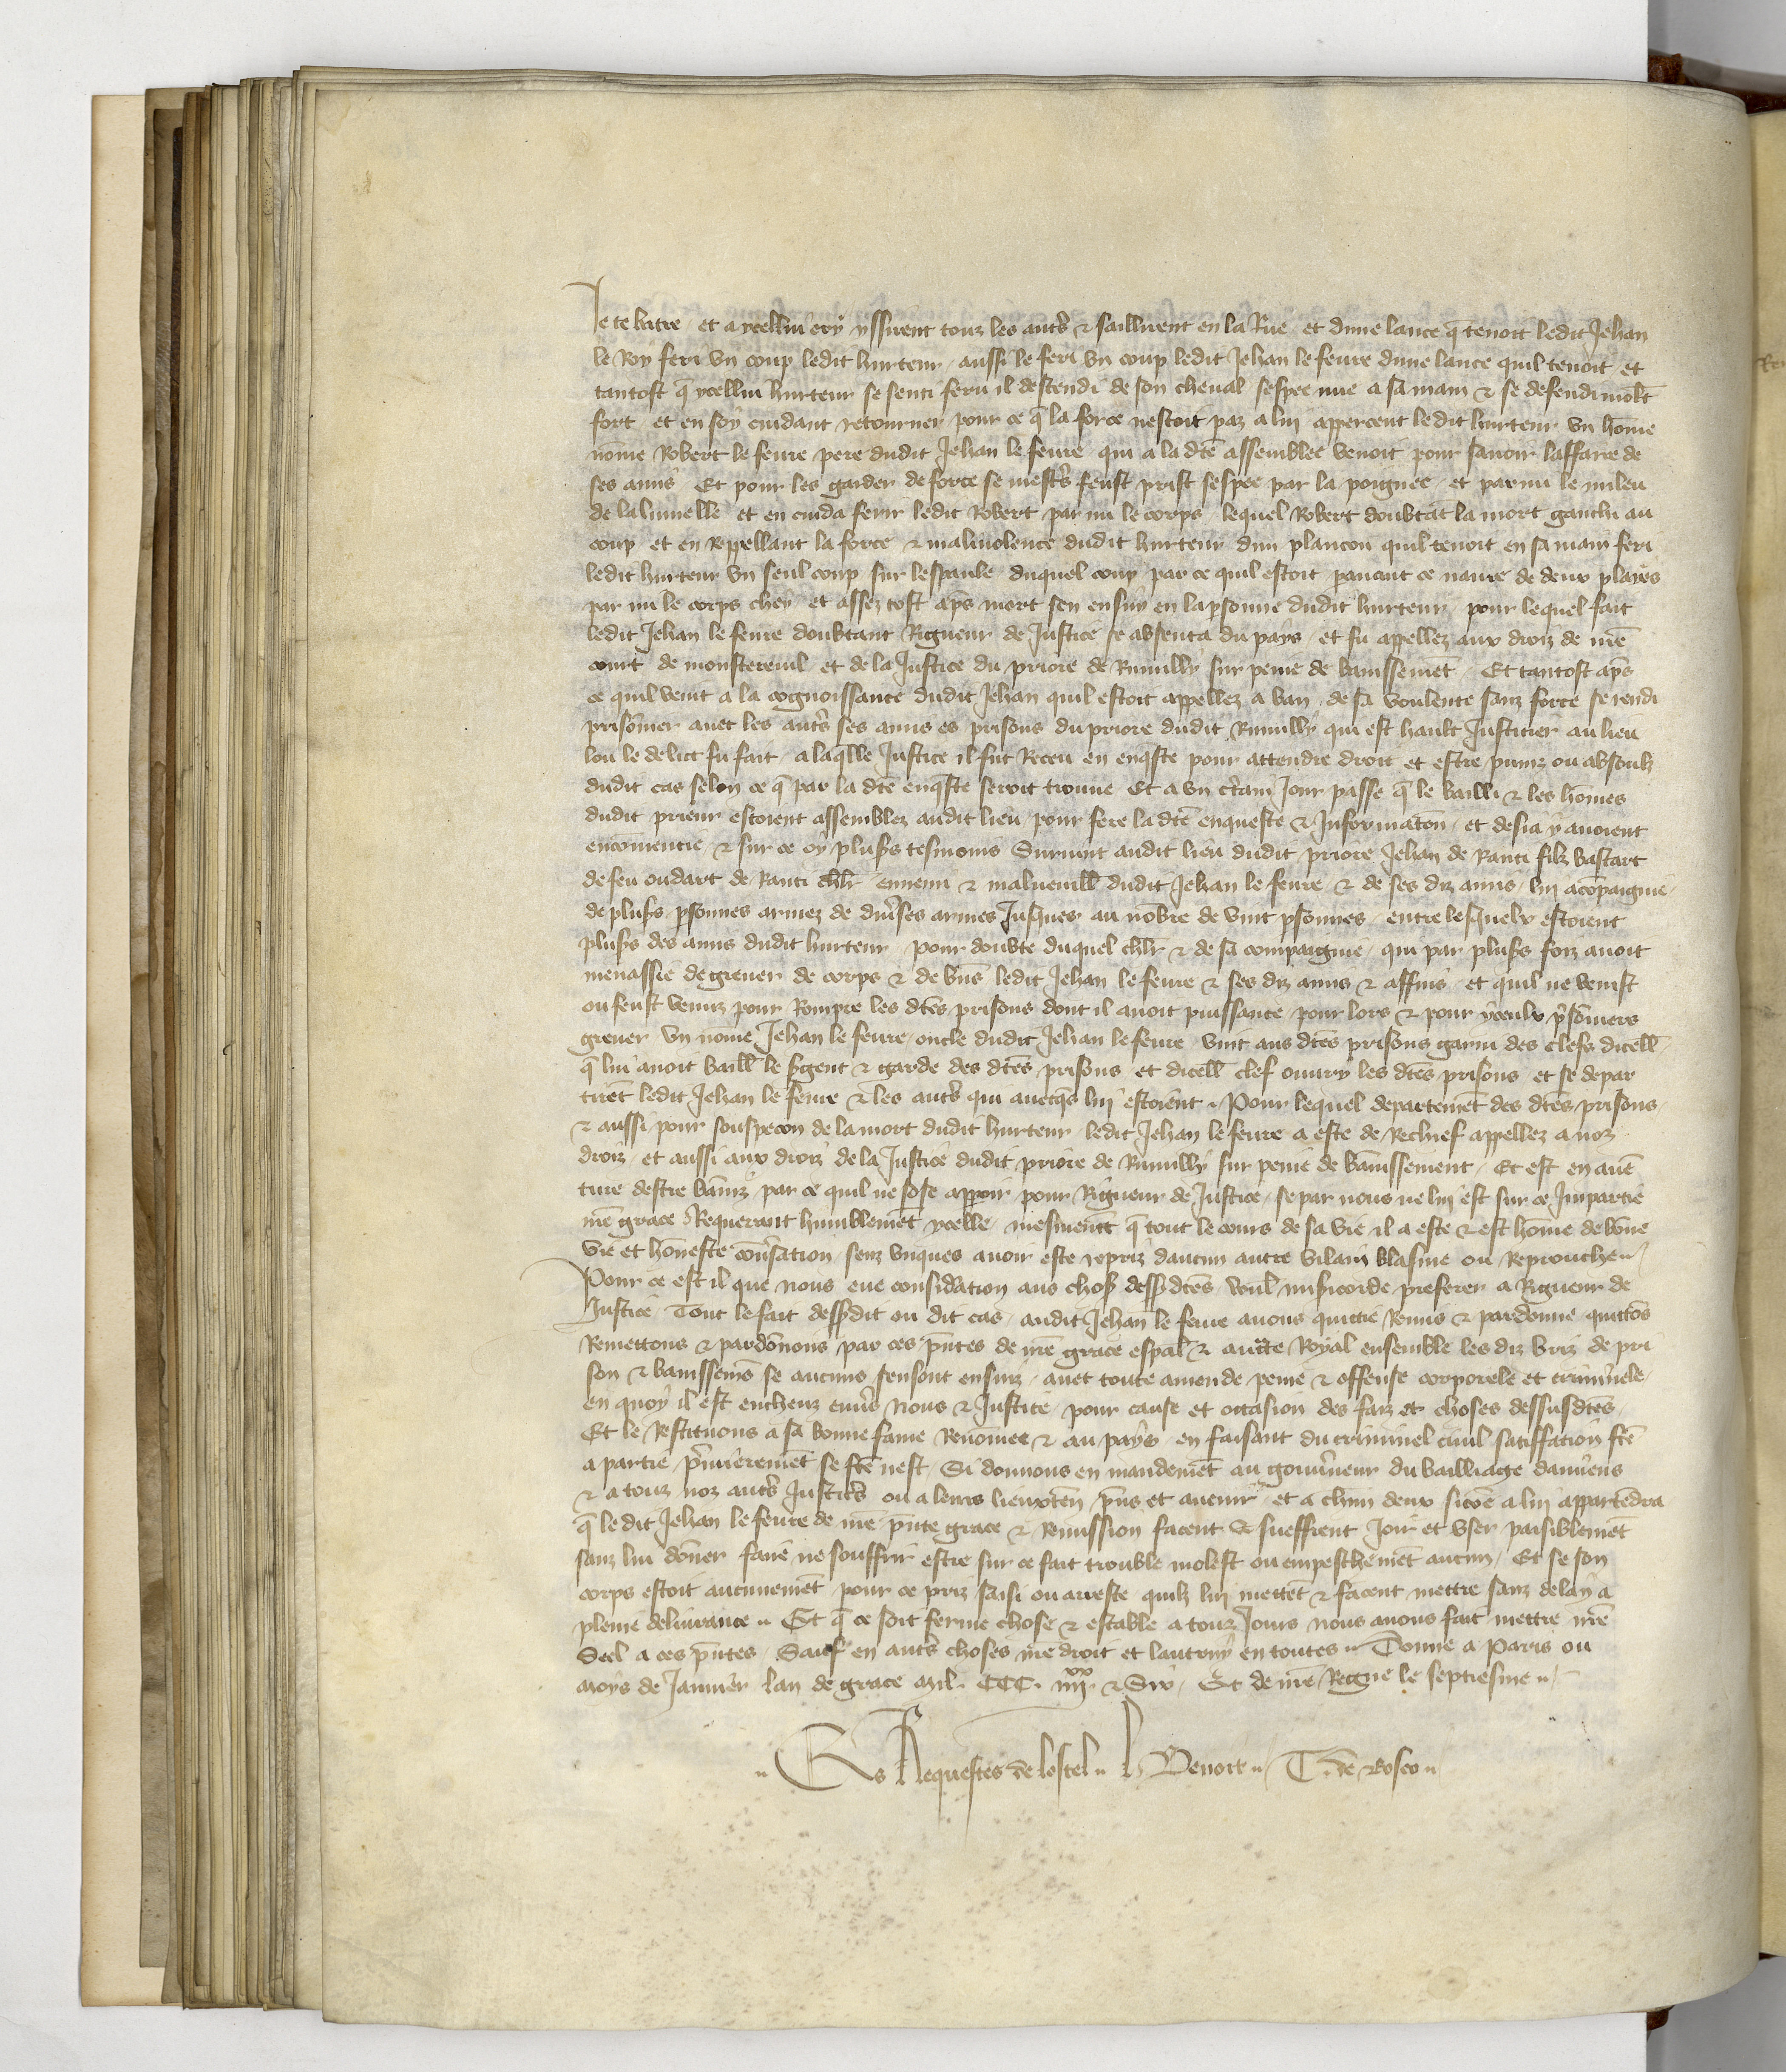 Je te batre et a ycellui cry yssirent touz les autrs & saillirent en la Rue et dune lance q̃ tenoit ledit Jehan
le Roy feri vn coup ledit hurteur aussi le feri vn coup ledit Jehan le feure dune lance quil tenoit et
tantost q̃ ycellui hurteur se senti feru il descendi de son cheual sespee nue a sa main & se defendi mõlt
fort et en soy cuidant retourner pour ce q̃ la force nestoit paz a lui apperceut ledit hurteur vn hõme
nõme Robert le feure pere dudit Jehan le feure qui a la dtẽ assemblee venoit pour sauoir laffaire de
ses amis Et pour les garder de force se mestrs feust prist sespee par la poignee et parmi le mileu
de lalumelle et en cuida ferir ledit Robert par mi le corps lequel Robert doubtãt la mort ganchi au
coup et en Repellant la force & maliuolence dudit hurteur dun plancon quil tenoit en sa main feri
ledit hurteur vn seul coup sur lespaule duquel coup par ce quil estoit parauant ce naure de deux plaies
par mi le corps chey et assez tost ap̃s mort sen ensuy en la psonne dudit hurteur pour lequel fait
ledit Jehan le feure doubtant Rigueur de Justice se absenta du pays et fu appellez aux droiz de nr̃e
court de monstereuil et de la Justice du priore de Rumilly sur peine de banissemẽt Et tantost ap̃s
ce quil vint a la cognoissance dudit Jehan quil estoit appellez a ban de sa voulente sanz force se rendi
prisõnier auec les autrs ses amis es prisons du priore dudit Rumilly qui est hault Justicier au lieu
lou le delict fu fait a laq̃lle Justice il fut Receu en enq̃ste pour attendre droit et estre puniz ou absoulz
dudit cas selon ce q̃ par la dtẽ enq̃ste seroit trouue Et a vn c̃tain Jour passe q̃ le bailli & les hõmes
dudit prieur estoient assemblez audit lieu pour fere la dtẽ enqueste & Informacõn et desia y auoient
encõmencie & sur ce oy plusrs tesmoins Suruint audit lieu dudit priore Jehan de Ranti filz bastart
de feu oudart de Ranti chlr ennemi & malueuill̃ dudit Jehan le feure & de ses diz amis lui acõpaignie
de plusrs psonnes armez de diu̾ses armes Jusques au nõbre de vint psonnes entre lesquelx estoient
plusrs des amis dudit hurteur pour doubte duquel chlr & de sa compaignie qui par plusrs foiz auoit
menassie de greuer de corps & de biẽs ledit Jehan le feure & ses diz amis & affins et quil ne venist
ou feust venuz pour Rompre les dtẽs prisons dont il auoit puissance pour lors & pour yceulx p̾sõniers
greuer vn nõme Jehan le feure oncle dudit Jehan le feure vint aus dtẽs prisons garni des clefs dicell̃
q̃ lui auoit baill̃ le sgent & garde des dtẽs prisons et dicell̃ clef ouury les dtẽs prisons et se depar
tirẽt ledit Jehan le feure & les autrs qui auecq̃s lui estoient Pour lequel departemẽt des dtẽs prisons
& aussi pour souspecon de la mort dudit hurteur ledit Jehan le feure a este de Rechief appellez a noz
droiz et aussi aux droiz de la Justice dudit priore de Rumilly sur peine de bãnissement Et est en auẽ
ture destre bãniz par ce quil ne sose appoir pour Rigueur de Justice se par nous ne lui est sur ce Impartie
nr̃e grace Requerant humblemẽt ycelle mesmemẽt q̃ tout le cours de sa vie il a este & est hõme de bõne
vie et hõneste conu̾sation senz vnques auoir este repriz daucun autre vilain blasme ou Reprouche
Pour ce est il que nous eue considacion aus chos̃ dess̾dtẽs voul̃ mis̾icorde preferer a Rigueur de
Justice Tout le fait dess̾dit ou dit cas audit Jehan le feure auons quictie Remis & pardonne quictõs
Remettons & pardõnons par ces p̃ntes de nr̃e grace esp̃al & auctte Royal ensemble les diz briz de pri
son & banissemẽs se aucuns sen sont ensuiz auec toute amende peine & offense corporele et criminele
en quoy il est encheuz enu̾s Nous & Justice pour cause et occasion des faiz et choses dessusdtẽs
Et le Restituons a sa bonne fame Renõmee & au pays en faisant du criminel ciuil satiffacion ftẽ
a partie p̾mierement se ftẽ nest Si donnons en mandemẽt au gouu̾neur du bailliage damiens
& a touz noz autrs Justicrs ou a leurs lieuxtẽn p̃ns et auenir et a chũn deulx sicõe a lui appartẽdra
q̃ le dit Jehan le feure de nr̃e p̃nte grace & Remission facent & sueffrent Joir et vser paisiblemẽt
sanz lui dõner faire ne souffrir estre sur ce fait trouble molest ou empeschemẽt aucun Et se son
corps estoit aucunemẽt pour ce priz saisi ou arreste quilz lui mettẽt & facent mettre sanz delay a
pleine deliurance Et q̃ ce soit ferme chose & estable a touz Jours nous auons fait mettre nr̃e
Seel a ces p̃ntes Sauf en autrs choses nr̃e droit et lautruy en toutes Donne a Paris ou
moys de Januier lan de grace mil CCC. iiijxx & Six Et de nr̃e Regne le septiesme
Es Requestes de lostel h Benoit T. de Rosco